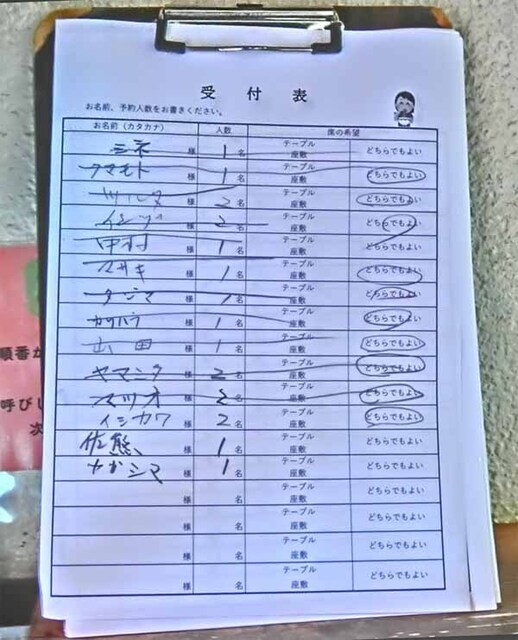 受付表
お名前、予約人数をお書きください。
お名前（カタカナ） 人数 席の希望
シネ 様 1名 テーブル 座敷 どちらでもよい
クマモト 様 1名 テーブル 座敷 どちらでもよい
ツルタ 様 2名 テーブル 座敷 どちらでもよい
イシヅ 様 2名 テーブル 座敷 どちらでもよい
中村 様 1名 テーブル 座敷 どちらでもよい
マサキ 様 1名 テーブル 座敷 どちらでもよい
タジマ 様 1名 テーブル 座敷 どちらでもよい
様 1名 テーブル 座敷 どちらでもよい
山田 様 1名 テーブル 座敷 どちらでもよい
ヤマシタ 様 2名 テーブル 座敷 どちらでもよい
マツオ 様 名 テーブル 座敷 どちらでもよい
イシカワ 様 2名 テーブル 座敷 どちらでもよい
佐熊 様 1名 テーブル 座敷 どちらでもよい
カガシマ 様 1名 テーブル 座敷 どちらでもよい
様 名 テーブル 座敷 どちらでもよい
様 名 テーブル 座敷 どちらでもよい
様 名 テーブル 座敷 どちらでもよい
様 名 テーブル 座敷 どちらでもよい
順番が
呼びし
次